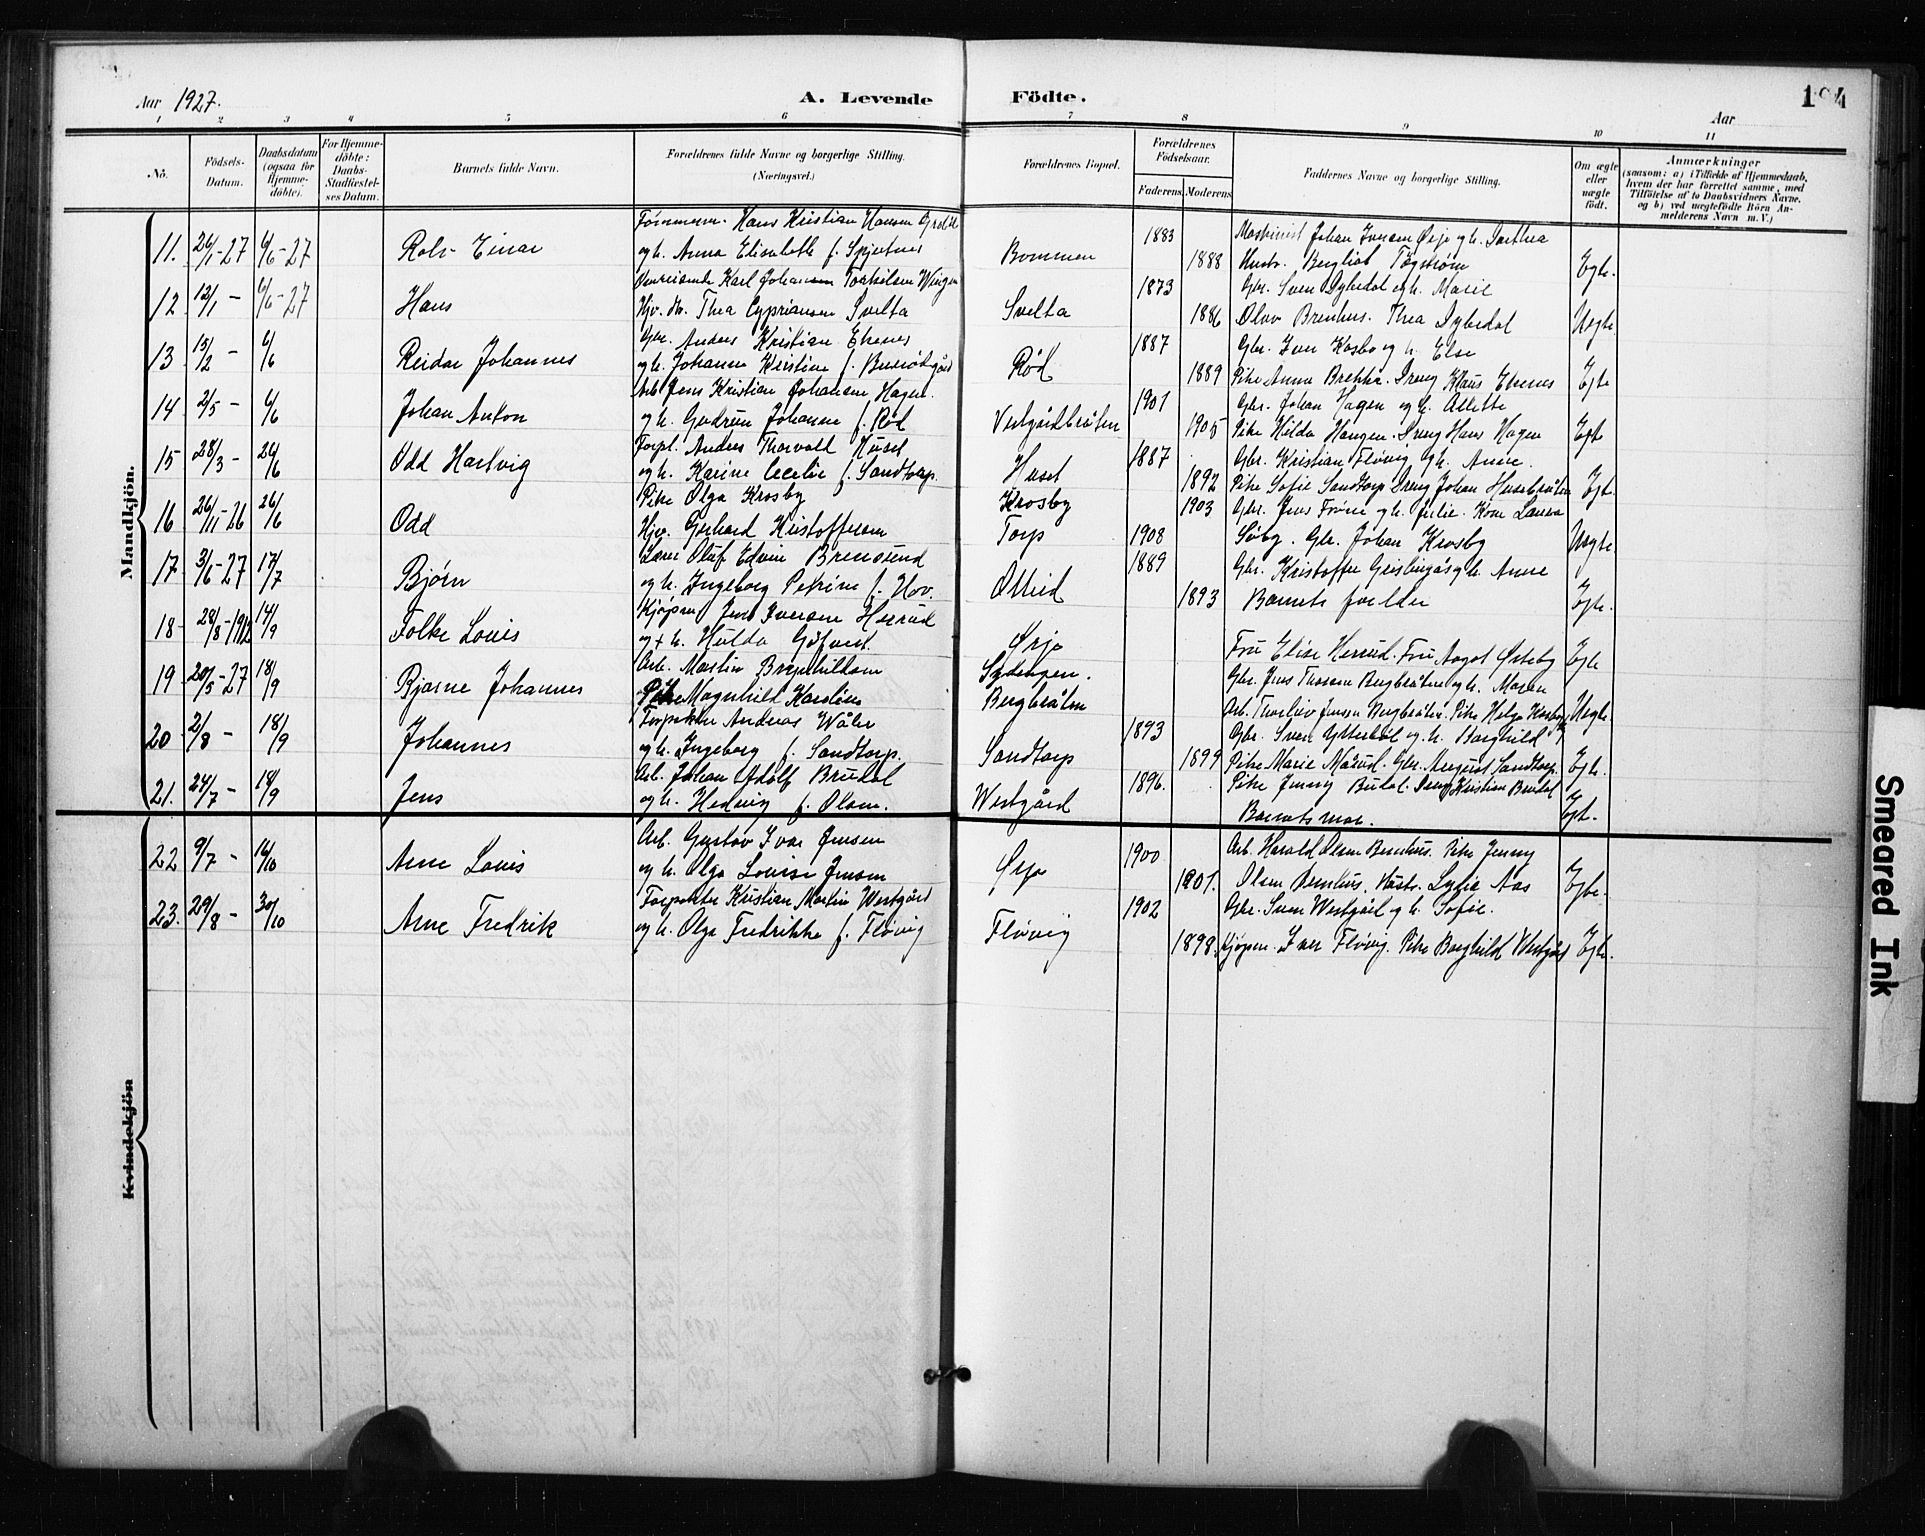 Aar 1927. A. Levende Födte. Aar
1 2 3 4 5 6 7 8 9 10 11
No. Födsels-Datum. Daabsdatum (ogsaa for Hjemmedöbte). For Hjemmedöbte: Daabs-Stadfæstelses Datum. Barnets fulde Navn. Forældrenes fulde Navne og borgerlige Stilling. (Næringsvei.) Forældrenes Bopæl. Forældrenes Födselsaar. Faderens Moderens Faddernes Navne og borgerlige Stilling. Om ægte eller uægte födt. Anmærkninger (saasom: a) i Tilfælde af Hjemmedaab, hvem der har forrettet samme, med Tilföielse af to Daabsvidners Navne, og b) ved uægtefödte Börn Anmelderens Navn m. V.)
Mandkjön.
11. 26/1-27 6/6-27 Rolv Einar Tømmerm. Hans Kristian Hansen 1883 Maskinist Johan Iversen Ørje og h. Dorthea
og h. Anna Elisabeth f. Spjetnes Bommen 1888 Hustr. Bergliot Tøgstrøm Egte.
12 12/1 - 6/6-27 Hans Karl Johansen Torkelsen Wingen 1873 Gbr. Sven Dybedal og h. Marie
Thea Cypriansen Svelta Svelta 1886 Olav Brenhus. Thea Dybedal Uegte
13 15/2 - 6/6 Reidar Johannes Gbr. Anders Kristian Ekenes 1887 Gbr. Iver Kasbo og h. Else
og h. Johanne Kristine f. Rød 1889 Pike Anna Brekke. Dreng Klaus Ekenes Egte
14 2/5 - 6/6 Johan Anton Arb. Jens Kristian Johansen Hagen. 1901 Gbr. Johan Hagen og h. Alette
og h. Gudrun Johanne f. Rød Vestgårdbråten 1905 Pike Hilda Haugen. Dreng Hans Hagen Egte
15 28/3 - 26/6 Odd Hartvig Forp. Anders Thorvald Huset 1887 Gbr. Kristian Fløvig og h. Anne.
og h. Karine Cecilie f. Sandtorp. Huset 1892 Pike Sofie Sandtorp Dreng Johan Husebråten Egte.
16 26/11-26 26/6 Odd Pike Olga Krosby Krosby 1903 Gbr. Jens Trøme og h. Julie. Kone Laura
Hjv. Gerhard Kristoffersen Torp 1908 Søby. Gbr. Johan Krosby Uegte
17 3/6-27 17/7 Bjørn Lærer Oluf Edvin Bremsund 1889 Gbr. Kristoffer og h. Anne
og h. Ingeborg Petrine f. Hov. Otteid 1893 Barnets forelder Egte.
18 28/8-1912 14/9 Folke Louis Kjøpm. Jens Iversen Herrud
og h. Hulda Ørje Fru Elise Herrud. Fru Aagot Østeby Egte
19 20/5-27 18/9 Bjarne Johannes Arb. Martin Brynhildsen Sydengen. Gbr. Jens Thorsen Bergbråten og h. Maren
Pike Magnhild Karoline Bergbråten Arb. Thorleiv Jensen Bergbråten. Pike Helga Kasbo Uegte.
20 2/8 - 18/9 Johannes Forpakter Andreas Wåler 1893 Gbr. Sven Ytterbøl og h. Borghild
og h. Ingeborg f. Sandtorp. Sandtorp 1899 Pike Marie Mårud. Gbr. August Sandtorp. Egte.
21. 24/7 - 18/9 Jens Arb. Johan Adolf Brudal 1896. Pike Jenny Budal. Dreng Kristian Brudal
og h. Hedvig f. Olsen. Westgård Barnets mor. Egte.
22 9/7 - 16/10 Arne Louis Arb. Gustav Ivar Jensen 1900 Arb. Harald Olsen Bernhus. Pike Jenny
og h. Olga Louise Jensen Ørje 1901. Olsen Bernhus. Hustr. Lydia Aas Egte.
23. 29/8 - 30/10 Arne Fredrik Forpakter Kristian Martin Westgård 1902 Gbr. Sven Westgård og h. Sofie.
og h. Olga Fredrikke f. Fløvig Fløvig 1898. Kjøpm. Iver Fløvig. Pike Borghild Westgård Egte.
Kvindekjön
Smeared Ink